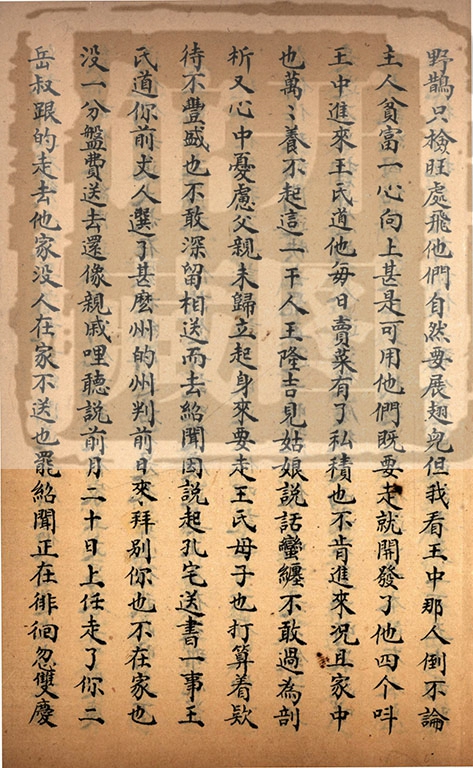 野鵲只檢旺處飛他們自然要展翅兒但我看王中那人倒不論
主人貧富一心向上甚是可用他們既要走就開發了他四个呌
王中進來王氏道他每日賣菜有了私積也不肯進來况且家中
也萬〻養不起這一干人王隆吉見姑娘說話蠻纏不敢過為剖
析又心中憂慮父親未歸立起身來要走王氏母子也打算着欵
待不豐盛也不敢深留相送而去紹聞因說起孔宅送書一事王
氏道你前丈人選了甚麼州的州判前日來拜別你也不在家也
没一分盤費送去還像親戚哩聽說前月二十日上任走了你二
岳叔跟的走去他家没人在家不送也罷紹聞正在徘徊忽雙慶